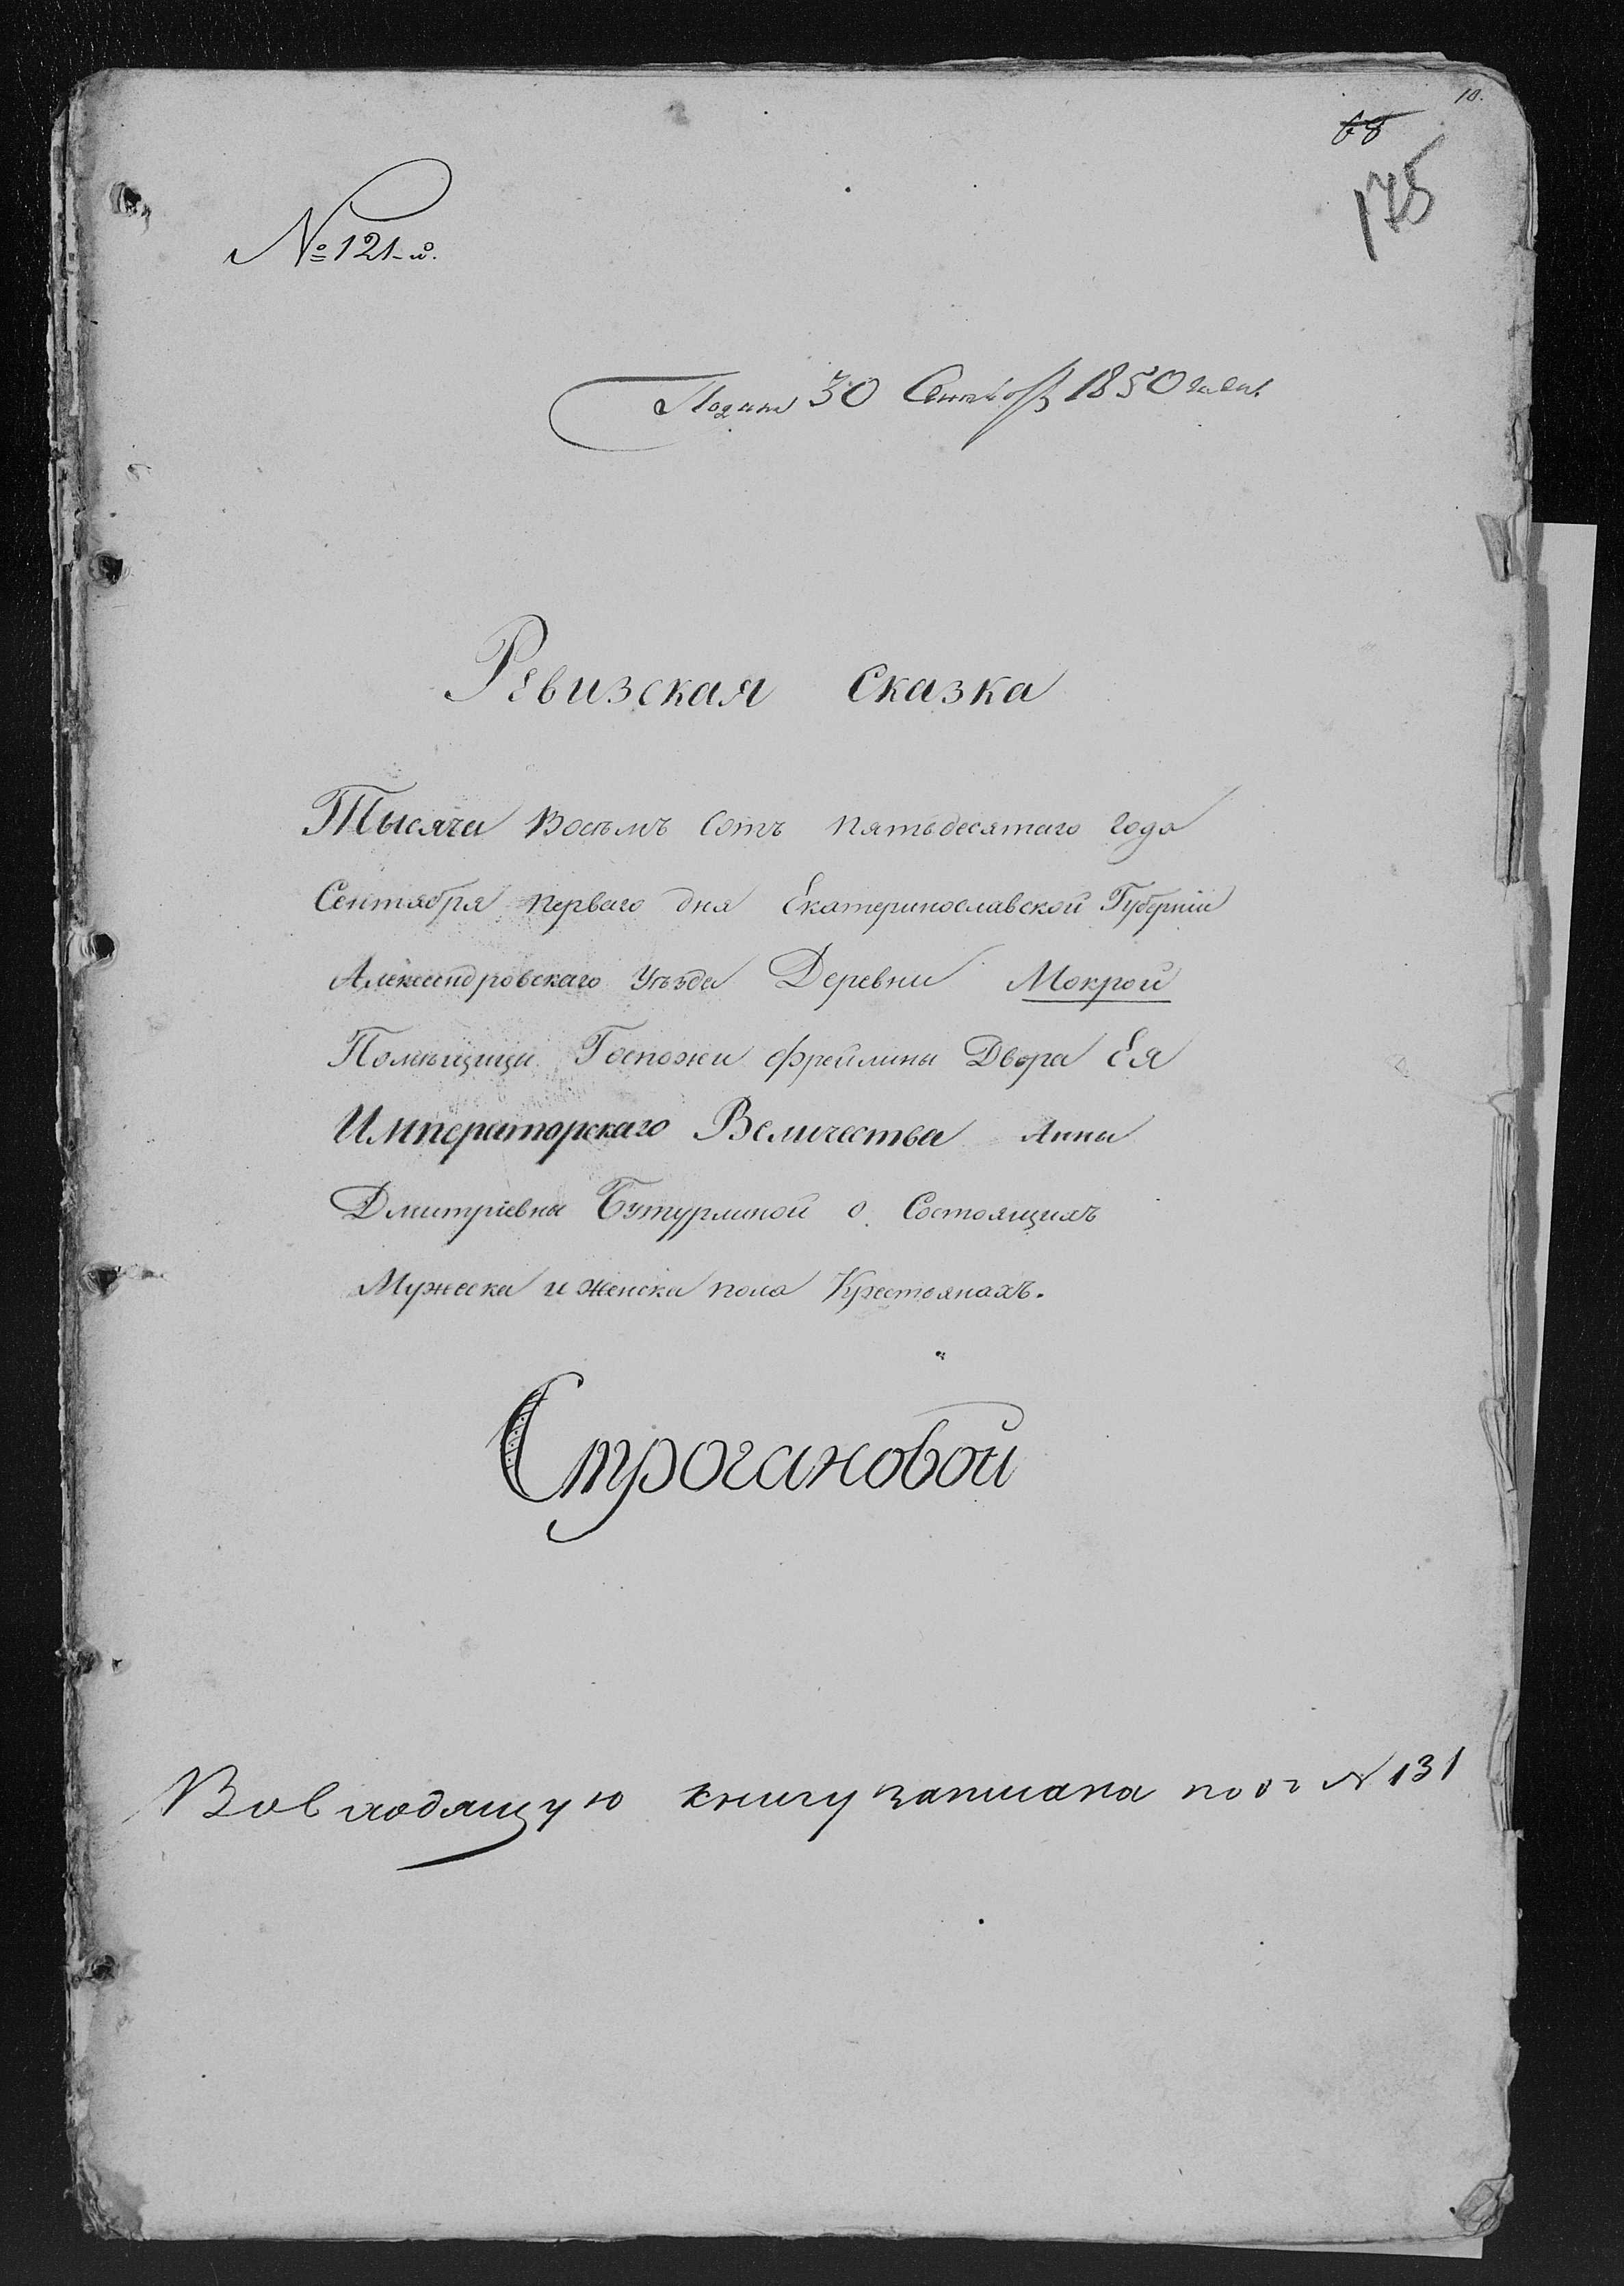 10.
68
175
№ 121-й.
Подана 30 Сентября 1850 года.
Ревизская Сказка
Тысяча Восемь Сотъ пятьдесятаго года
Сентября перваго дня Екатеринославской Губерніи
Александровскаго Уѣзда Деревни Мокрой
Помѣщицы Госпожи фрейлины Двора Ея
Императорскаго Величества Анны
Дмитріевны Бутурлиной о Состоящихъ
Мужеска и женска пола Крестьянахъ.
Строгановой
Во входящую книгу записана подъ N 131